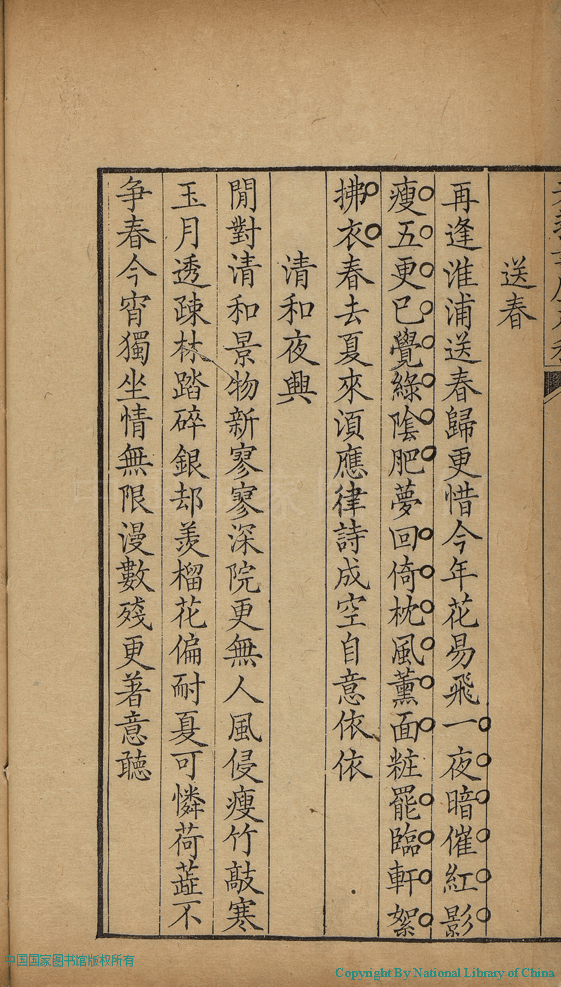 送春
再逢淮浦送春歸更惜今年花易飛一夜暗催紅影
瘦五更已覺綠陰肥夢回倚枕風薰面粧罷臨軒絮
拂衣春去夏來須應律詩成空自意依依
清和夜興
閒對清和景物新寥寥深院更無人風侵瘦竹敲寒
玉月透疎林踏碎銀却羨榴花偏耐夏可憐荷蕋不
争春今宵獨坐情無限漫數殘更著意聽
中国国家图书馆版权所有
Copyright By National Library of China